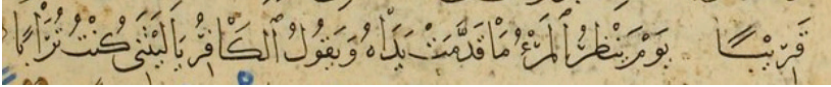 قَرِيْبًا يَوْمَ يَنْظُرُ الْمَرْءُ مَا قَدَّمَتْ يَدَاهُ وَيَقُولُ الْكَافِرُ يَا لَيْتَنِى كُنْتُ تُرَابًا